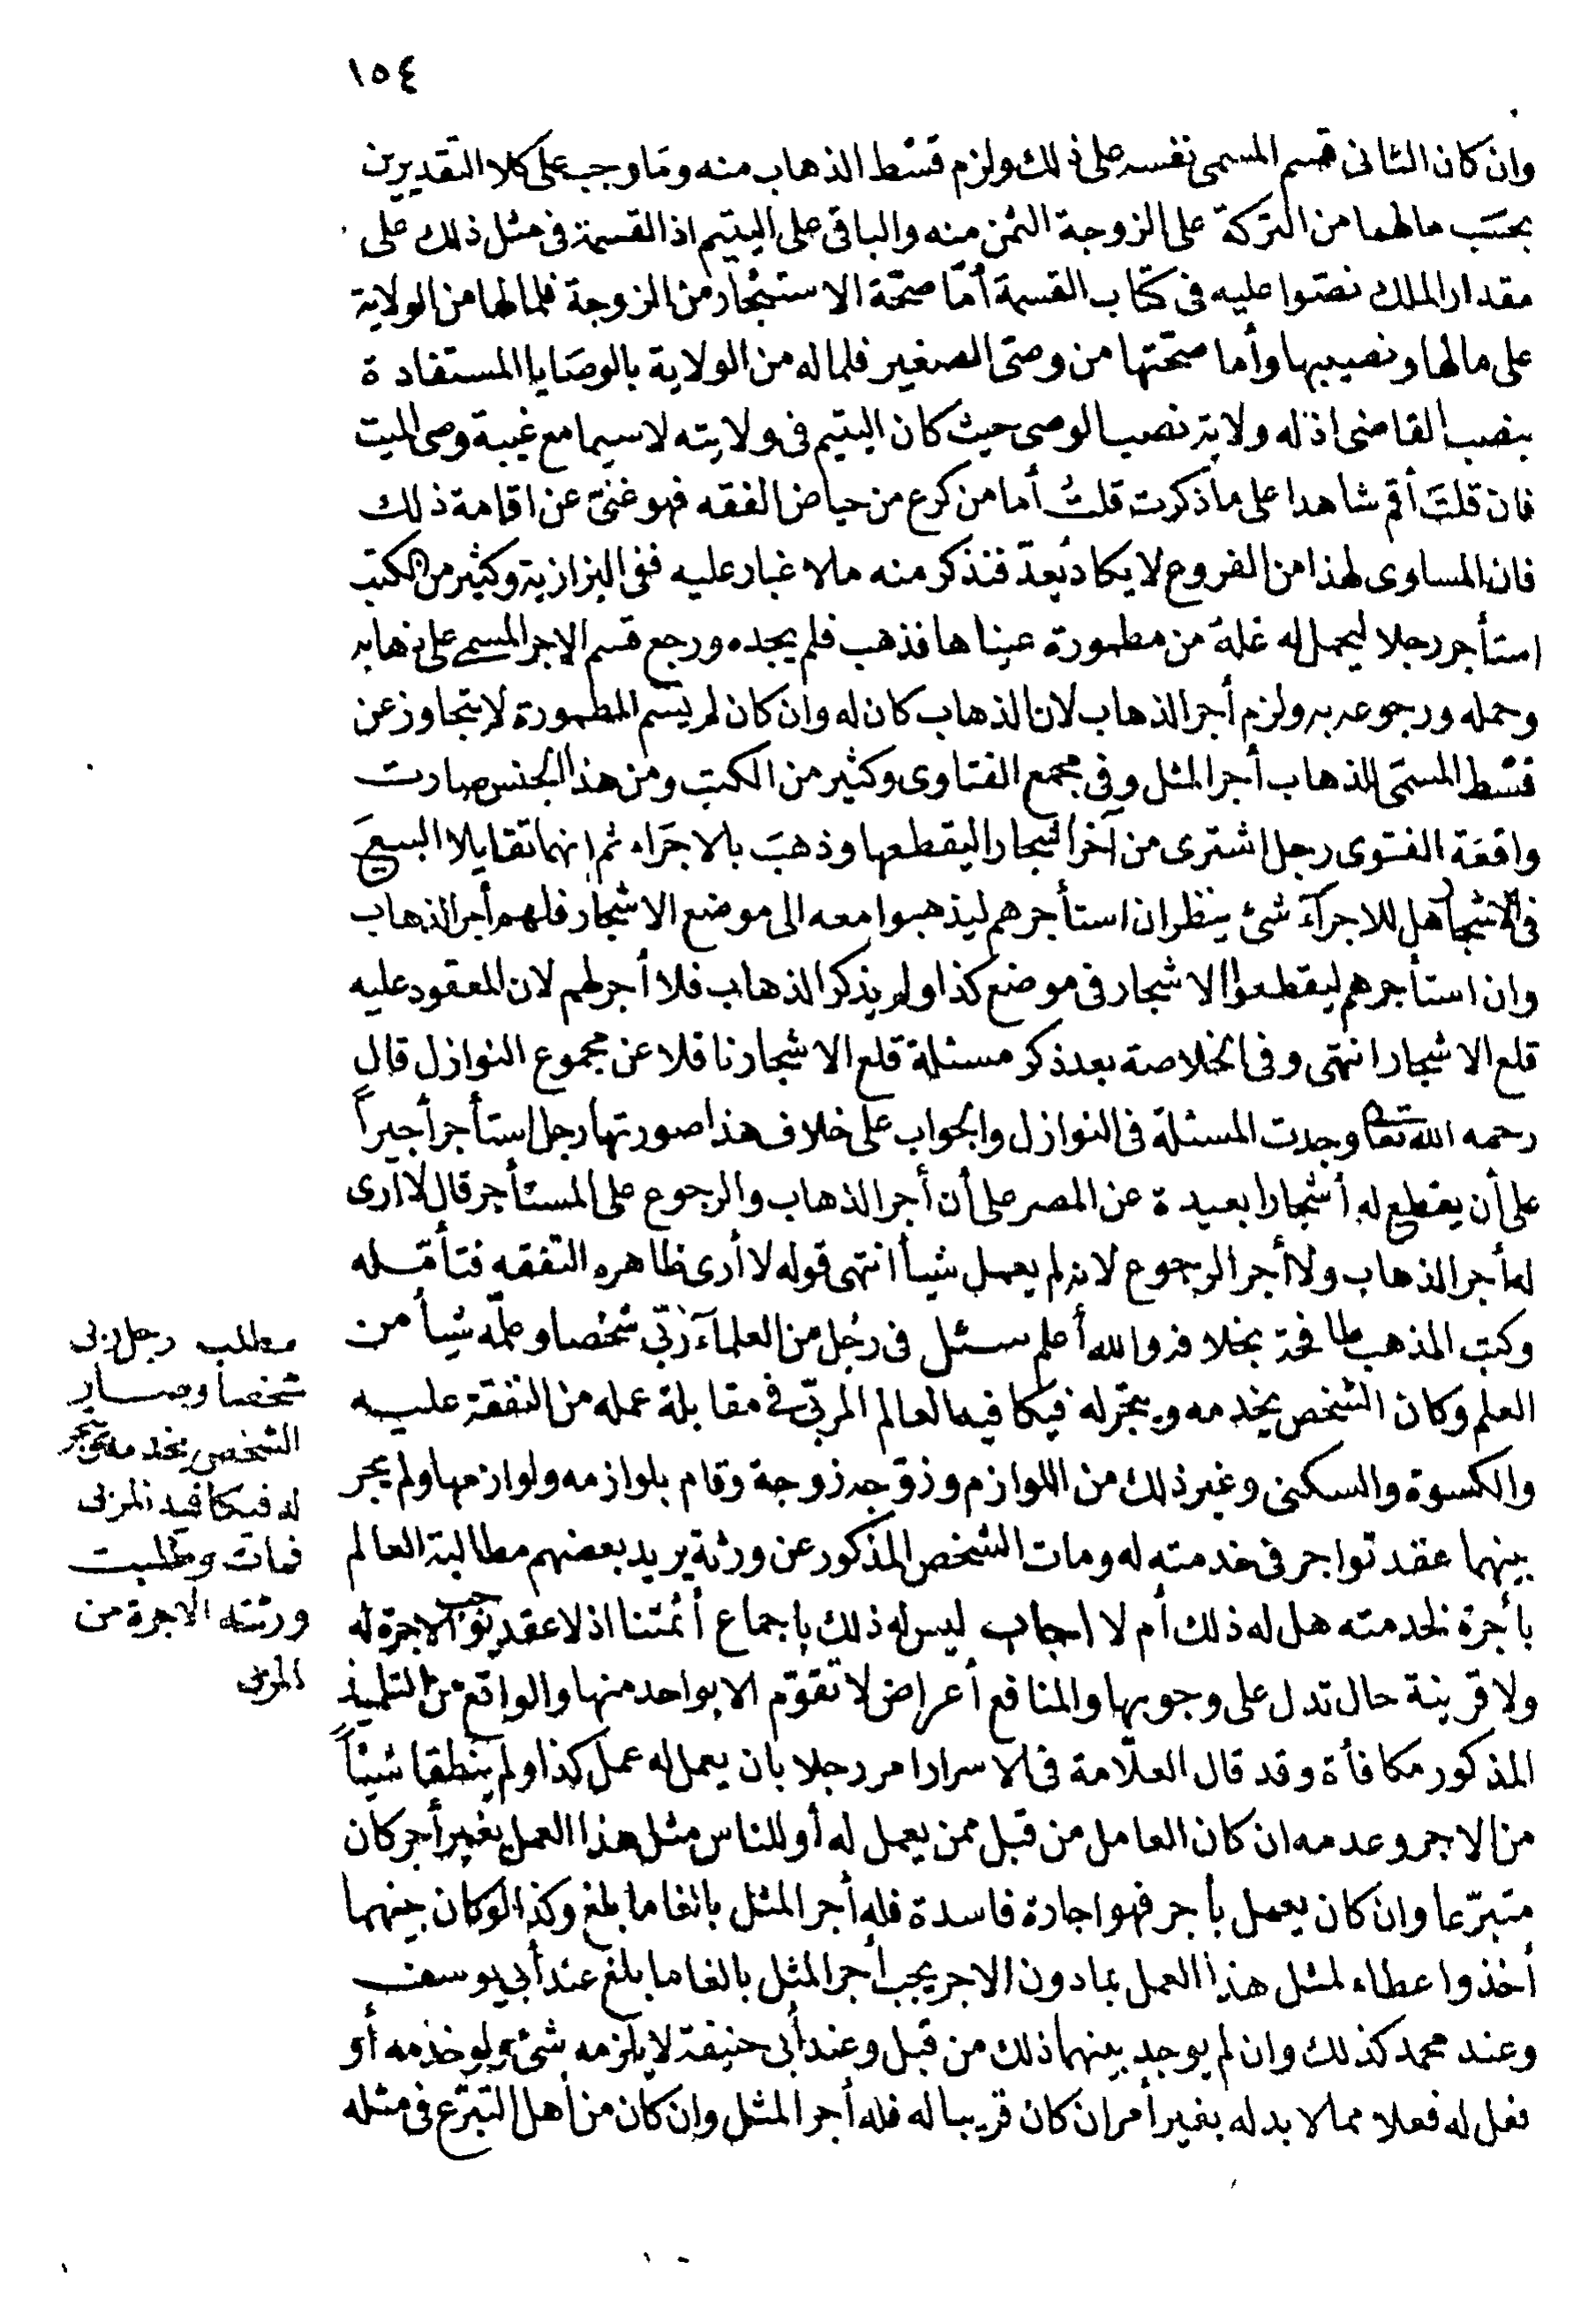 ١٥٤
وان كان الثانى قسم المسمى نفسه على ذلك ولزم قسط الذهاب منه وما وجب على كلا التقديرين
بحسب مالهما من التركة على الزوجة الثمن منه والباقى على اليتيم اذ القسمة فى مثل ذلك على
مقدار الملك نصوا عليه فى كتاب القسمة أمّا صحّة الاستئجار من الزوجة فلمالها من الولاية
على مالها ونصيبها وأما صحّتها من وصىّ الصغير فلماله من الولاية بالوصاية المستفادة
بنصب القاضى اذ له ولاية نصب الوصى حيث كان اليتيم فى ولايته لا سيما مع غيبة وصى الميت
فان قلتَ أقم شاهدا على ما ذكرت قلتُ أما من كرع من حياض الفقه فهو غنىّ عن اقامة ذلك
فان المساوى لهذا من الفروع لا يكاد يُعدّ فنذكر منه ما لا غبار عليه ففى البزازية وكثير من الكتب
استأجر رجلا ليحمل له غلة من مطمورة عيناها فذهب فلم يجده ورجع قسم الاجر المسمى على ذهابه
وحمله ورجوعه به ولزم أجر الذهاب لان الذهاب كان له وان كان لم يسم المطمورة لا يتجاوز عن
قسط المسمّى للذهاب أجر المثل وفى مجمع الفتاوى وكثير من الكتب ومن هذا الجنس صارت
واقعة الفتوى رجل اشترى من آخر اشجارا ليقطعها وذهب بالاجراء ثم انهما تقايلا البيع
فى الاشجار هل للاجراء شئ ينظر ان استأجرهم ليذهبوا معه الى موضع الاشجار فلهم أجر الذهاب
وان استأجرهم ليقطعوا الاشجار فى موضع كذا ولم يذكر الذهاب فلا أجر لهم لان المعقود عليه
قلع الاشجار انتهى وفى الخلاصة بعد ذكر مسئلة قلع الاشجار ناقلا عن مجموع النوازل قال
رحمه الله تعالى وجدت المسئلة فى النوازل والجواب على خلاف هذا صورتها رجل استأجر أجيراً
على أن يقطع له أشجارا بعيدة عن المصر على أن أجر الذهاب والرجوع على المستأجر قال لا أرى
له أجر الذهاب ولا أجر الرجوع لانه لم يعمل شيأ انتهى قوله لا أرى ظاهره التفقه فتأمّله
وكتب المذهب طافحة بخلافه والله أعلم سئل فى رجُل من العلماء ربّى شخصا وعلّمه شيأ من
العلم وكان الشخص يخدمه ويتجرله فيكافيه العالم المربّى فى مقابلة عمله من النفقة عليه
والكسوة والسكنى وغير ذلك من اللوازم وزوّجه زوجة وقام بلوازمه ولوازمها ولم يجر
بينهما عقد تواجر فى خدمته له ومات الشخص المذكور عن ورثة يريد بعضهم مطالبة العالم
بأجرة لخدمته هل له ذلك أم لا اجاب ليس له ذلك باجماع أئمتنا اذ لا عقد يوجب الاجرة له
ولا قرينة حال تدل على وجوبها والمنافع أعراض لا تقوّم الا بواحد منها والواقع من التلميذ
المذكور مكافأة وقد قال العلّامة فى الاسرار امر رجلا بان يعمل له عمل كذا ولم ينطقا شيئاً
من الاجر وعدمه ان كان العامل من قبل ممن يعمل له أو للناس مثل هذا العمل بغير أجر كان
متبرّعا وان كان يعمل بأجر فهو اجارة فاسدة فله أجر المثل بالغا ما بلغ وكذا لو كان بينهما
أخذ واعطاء لمثل هذا العمل بمادون الاجر يجب أجر المثل بالغا ما بلغ عند أبى يوسف
وعند محمد كذلك وان لم يوجد بينهما ذلك من قبل وعند أبى حنيفة لا يلزمه شئ ولو خدمه أو
فعل له فعلا مما لا بد له بغير أمر ان كان قريبا له فله أجر المثل وان كان من أهل التبرّع فى مثله
مطلب رجل ربى
شخصا وصار
الشخص يخدمه ويتجر
له فيكافيه المربى
فمات وطلبت
ورثته الاجرة من
المربى